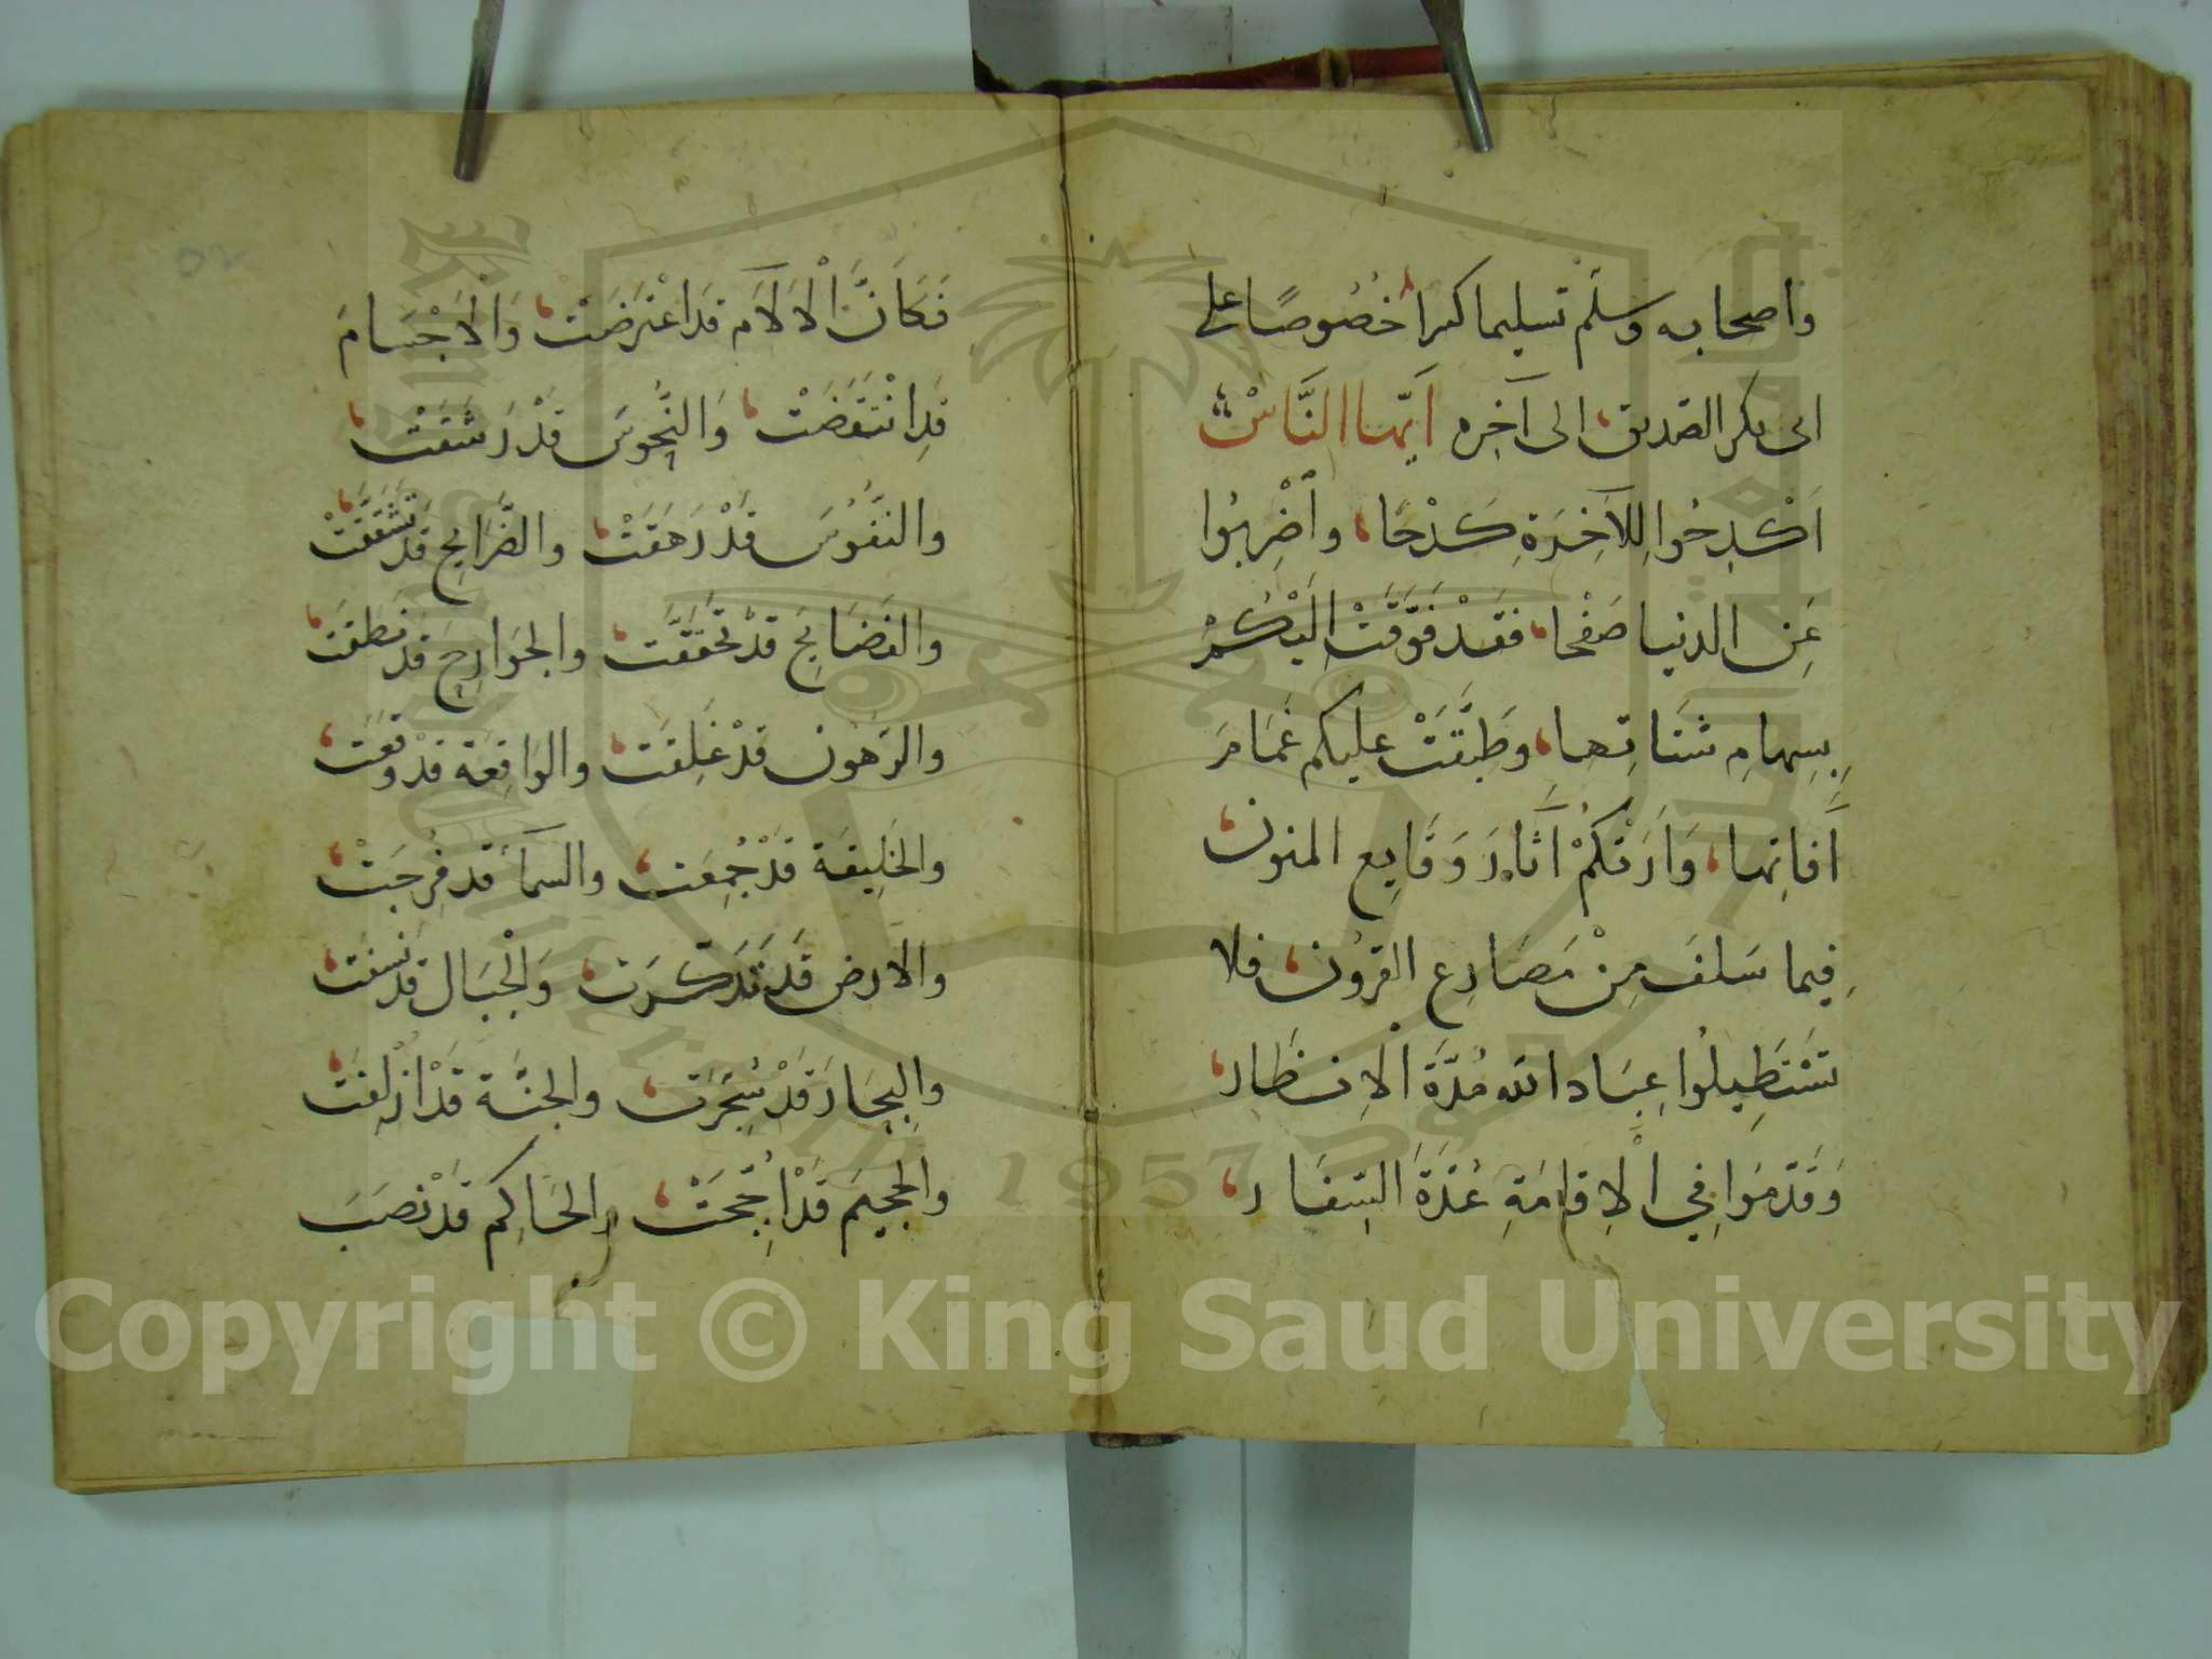 واصحابه وسلم تسليما كثيرا خُصُوصًا على
ابى بكر الصديق الى آخره اَيّها النَّاسْ
اَكْدِحُوا لِلآخِرَةِ كَدْحًا، واَضْرِبُوا
عَنِ الدنيا صَفْحًا، فقَدْ فَوَّقَتْ اليْكُمْ
بِسِهامِ شَتاتِها، وطَبَّقَتْ عليكم غَمَامَ
آفاتِها، وَاَرَتْكُمْ آثارَ وَقَايِعِ المنون
فِيما سَلفَ مِنْ مَصَارِعِ القرُون، فلا
تسْتَطِيلُوا عِبَاد الله مُدَّةَ الاِنتظار،
وَقَدّمُوا فِي الْاِقامَةِ عُدَّةَ السِّفَار،
فَكَاَنَّ الْالاَمَ قدَ اعْتَرضَتْ، وَالاَجْسَامَ
قَدِ انْتقَضَتْ، وَالنُّحُوسَ قَدْ رَشقَتْ،
والنفُوسَ قَدْ زَهَقَتْ، والضَّرَايِحَ قَدْ تشَقَّقَتْ،
والفضَايِحَ قَدْ تحَقَّقَت، والجَوارِحَ قَدْ نَطَقَت،
والرهُون قدْ غَلِقَت، والوَاقِعَة قدْ وقَعَت،
والخَلِيقة قدْ جُمِعَت، والسمآء قد فُرِجَتْ،
والارض قَدْ تَدَكدَكت، وَالْجِبَال قدْ نُسِفَت،
والبِحَارَ قَدْ سُجِّرَت، والجنَّة قَدْ اُزْلِفَت،
والجحِيمَ قَدْ اُجِّجَتْ، والحَاكِم قَدْ نصَبَ
Copyright © King Saud University
1957